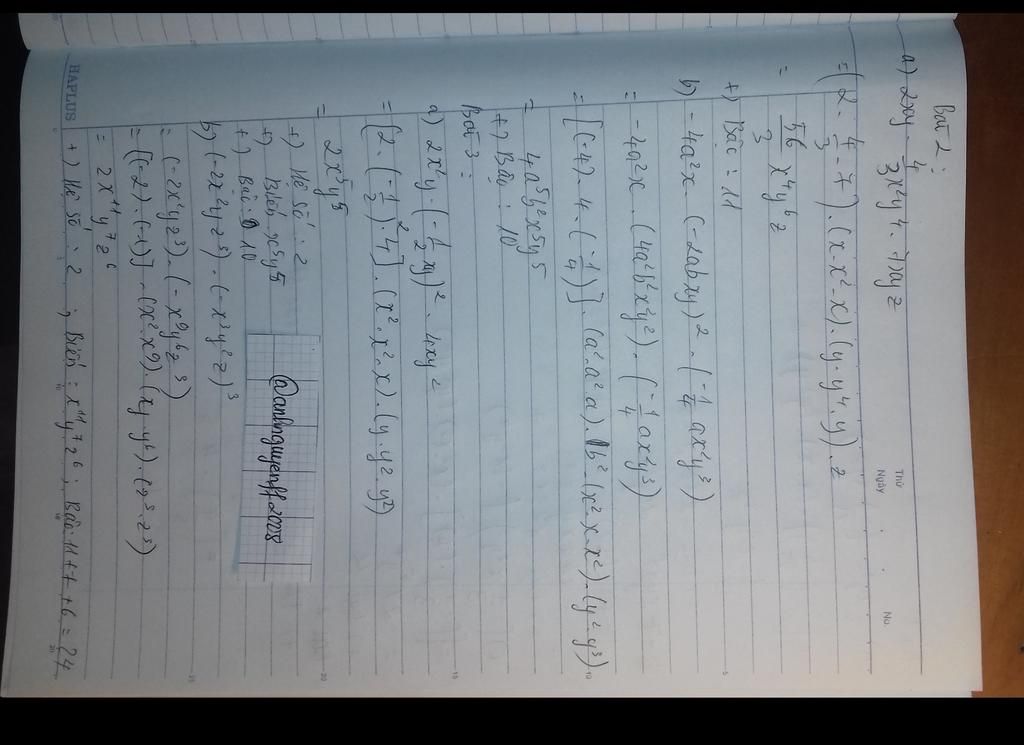 Thứ
Ngày
No.
Bài 2:
a) 2xy . 4/3 x²y⁴ . 7xyz
= (2 . 4/3 . 7) . (x . x² . x) . (y . y⁴ . y) . z
= 56/3 x⁴y⁶z
+) Bậc : 11
b) -4a²x . (-2abxy)² . (-1/4 ax²y³)
= -4a²x . (4a²b²x²y²) . (-1/4 ax²y³)
= [(-4) . 4 . (-1/4)] . (a² . a² . a) . b² . (x . x² . x²) . (y² . y³)
= 4a⁵b²x⁵y⁵
+) Bậc : 10
Bài 3 :
a) 2x²y . (-1/2 xy)² . 4xy²
= [2 . (-1/2)² . 4] . (x² . x² . x) . (y . y² . y²)
= 2x⁵y⁵
+) Hệ số : 2
+) Biến : x⁵y⁵
+) Bậc : 10
b) (-2x²yz³) . (-x³y²z)³
= (-2x²yz³) . (-x⁹y⁶z³)
= [(-2) . (-1)] . (x² . x⁹) . (y . y⁶) . (z³ . z³)
= 2x¹¹y⁷z⁶
+) Hệ số : 2 ; Biến : x¹¹y⁷z⁶ ; Bậc : 11 + 7 + 6 = 24
@anhnguyenff2008
HAPLUS